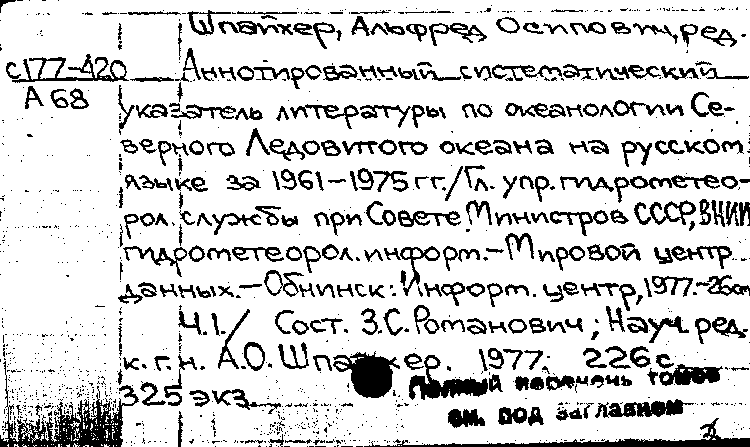 Шпайхер, Альфред Осипович, ред.
с177-420 Аннотированный систематический
А 68 указатель литературы по океанологии Се-
верного Ледовитого океана на русском
языке за 1961-1975 гг./Гл. упр. гидрометео-
рол. службы при Совете Министров СССР, ВНИИ
гидрометеорол. информ.-Мировой центр
данных.-Обнинск: Информ. центр, 1977.-26см
Ч.1./ Сост. З.С. Романович; Науч. ред.
к. г. н. А.О. Шпайхер. 1977. 226 с.
325 экз.
Полный перечень томов
см. под заглавием